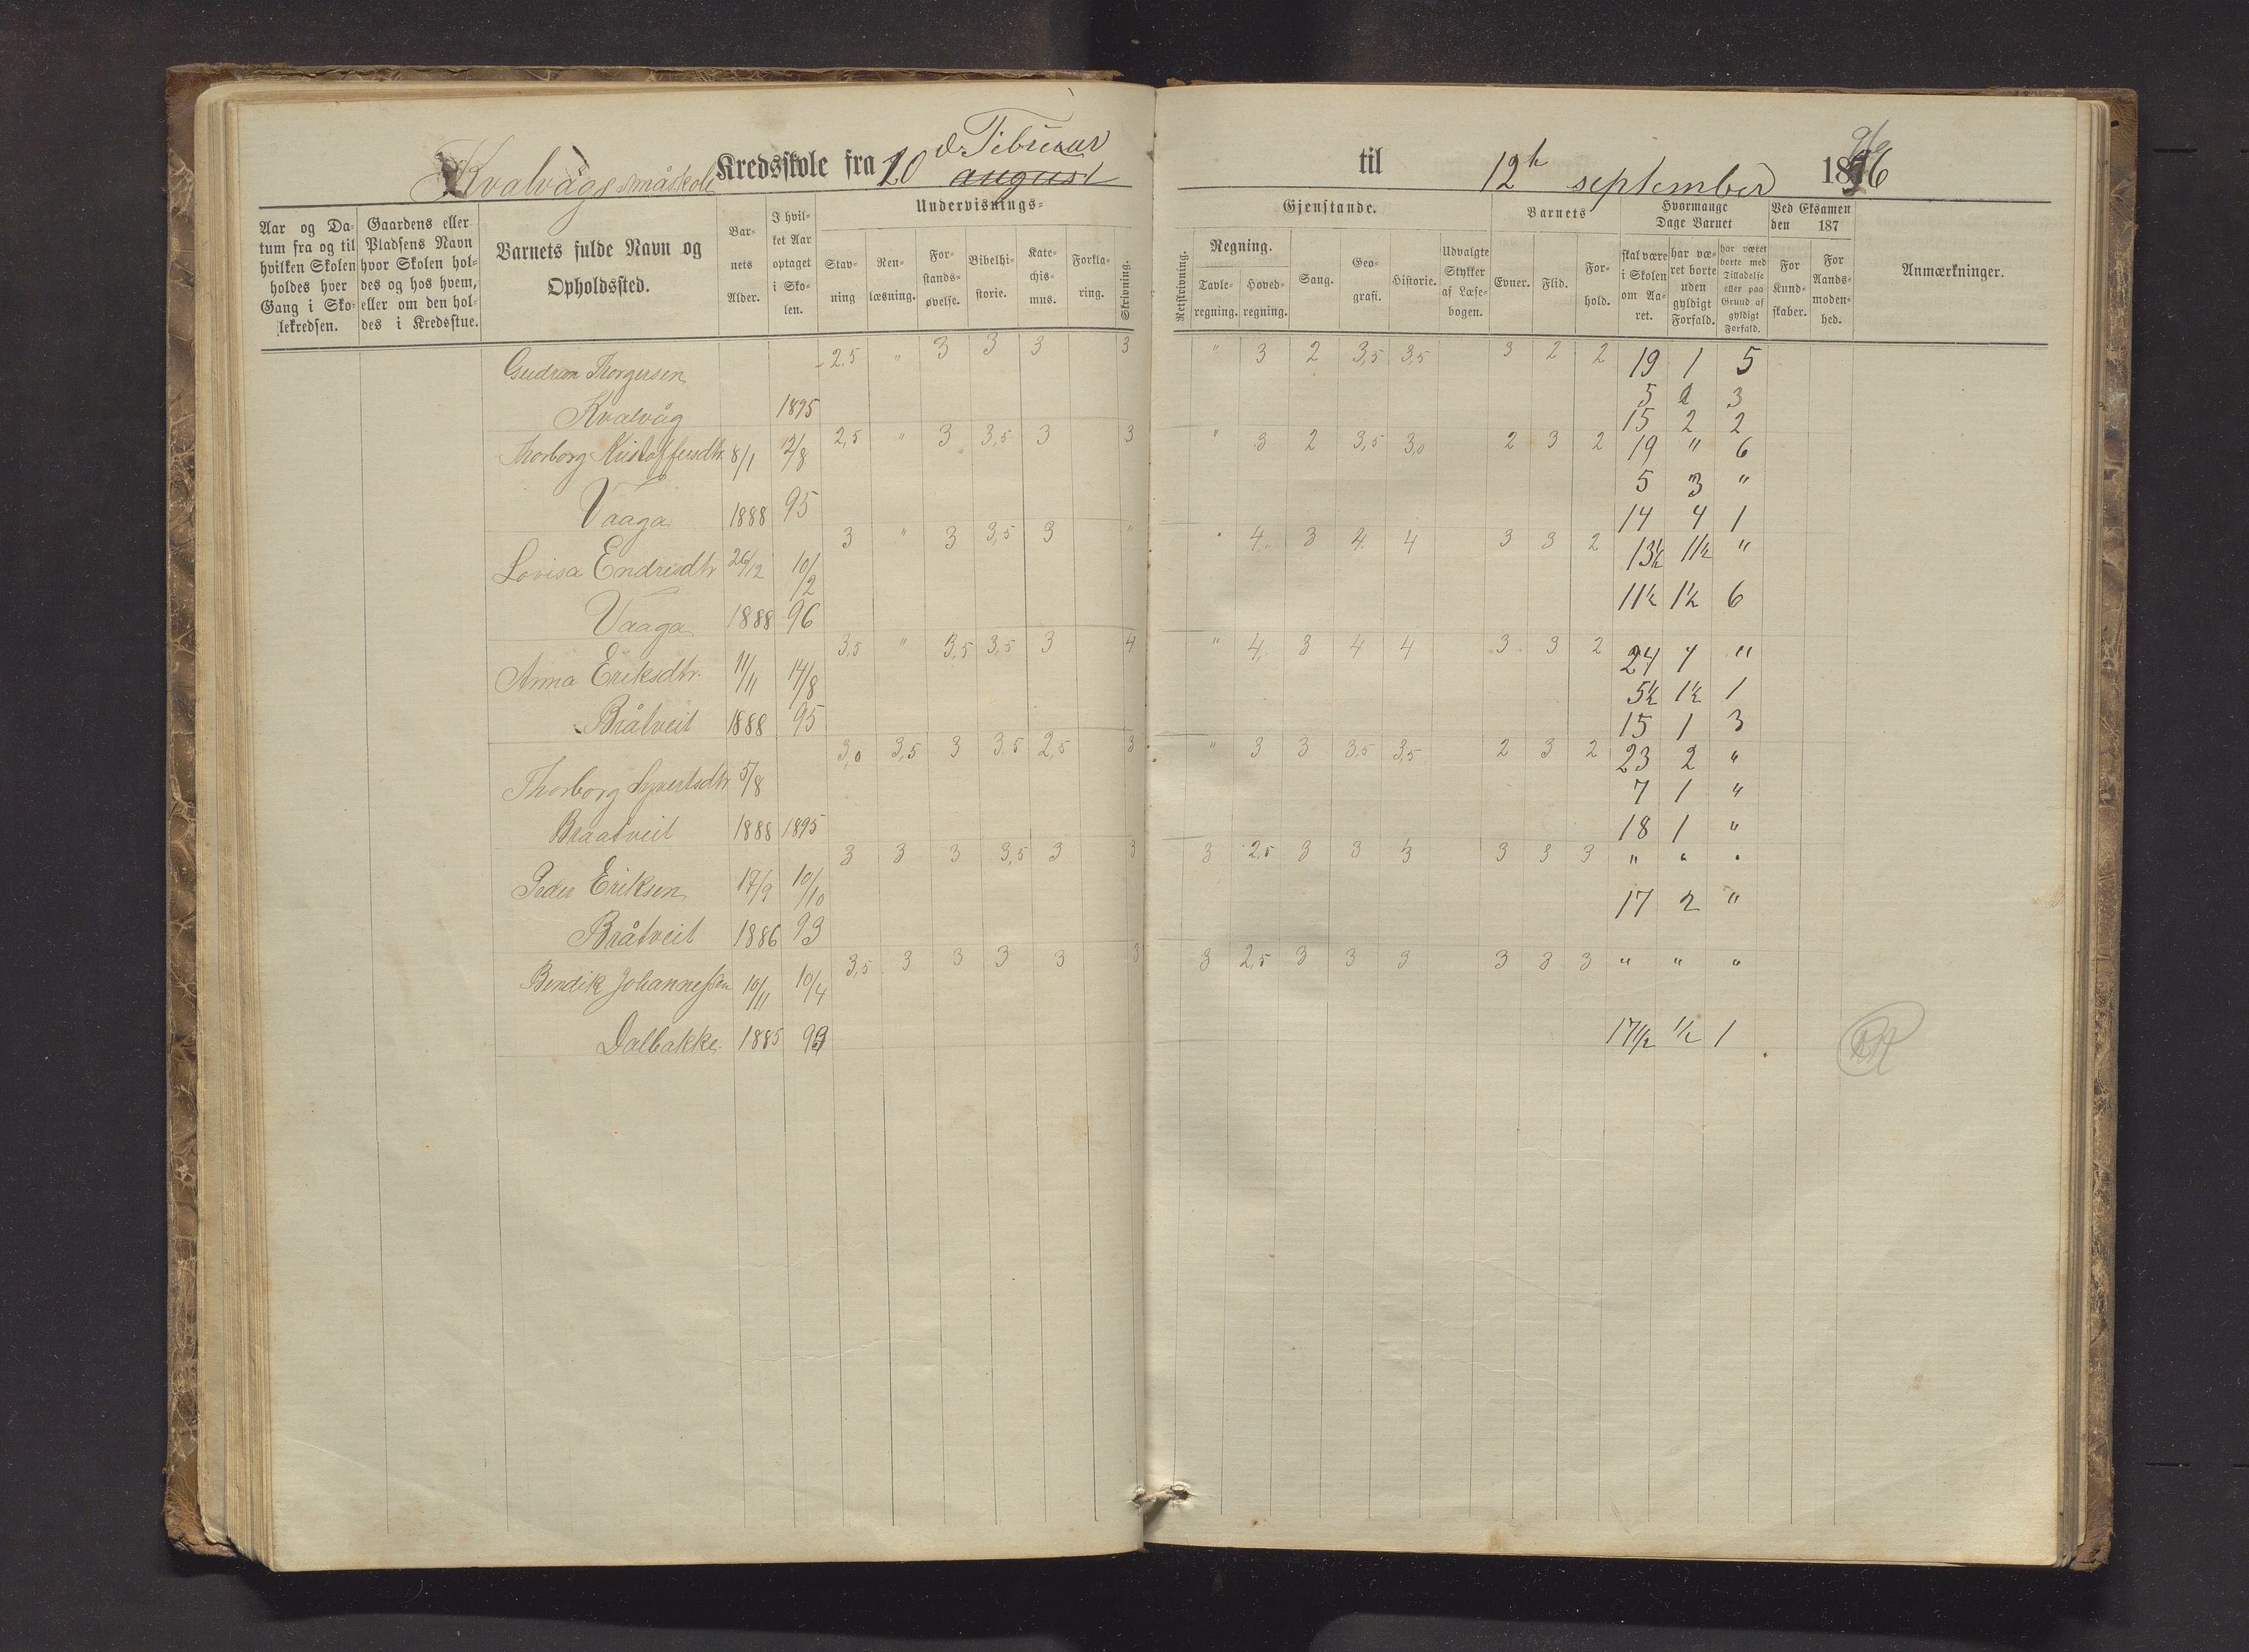 d. Februar
Kvalvågs småskole Kredsskole fra 10 august
til 12te september 1896
Undervisnings=
Gjenstande.
Aar og Da=
tum fra og til
hvilken Skolen
holdes hver
Gang i Sko=
lekredsen.
Gaardens eller
Pladsens Navn
hvor Skolen hol=
des og hos hvem,
eller om den hol=
des i Kredsstue.
Barnets fulde Navn og
Opholdssted.
Bar=
nets
Alder.
I hvil=
ket Aar
optaget
i Sko=
len.
Stav=
ning
Ren=
læsning.
For=
stands=
øvelse.
Bibelhi=
storie.
Kate=
chis=
mus.
Forkla=
ring.
Skrivning.
Retskrivning.
Regning.
Tavle=
regning.
Hoved=
regning.
Sang.
Geo=
grafi.
Historie.
Udvalgte
Stykker
af Læse=
bogen.
Barnets
Evner.
Flid.
For=
hold.
Hvormange
Dage Barnet
skal være
i Skolen
om Aa=
ret.
har væ=
ret borte
uden
gyldigt
Forfald.
har været
borte med
Tilladelse
eller paa
Grund af
gyldigt
Forfald.
Ved Eksamen
den 187
For
Kund=
skaber.
For
Aands=
moden=
hed.
Anmærkninger.
2.5 " 3 3 3 3 " 3 2 3,5 3,5 3 2 2 19 1 5
Gudrun Thorgersen
5 2 3
Kvalvåg 1895
15 2 2
2,5 " 3 3,5 3 3 " 3 2 3,5 3,0 2 3 2 19 " 6
Thorborg Kristoffersdtr. 8/1 12/8
5 3 "
Vaaga 1888 95
14 4 1
3 " 3 3,5 3 " " 4 3 4 4 3 3 2 13½ 1½ "
Lovisa Endresdtr 26/12 10/2
11½ 1½ 6
Vaaga 1888 96
3,5 " 3,5 3,5 3 4 " 4 3 4 4 3 3 2 24 1 "
Anna Eriksdtr. 11/11 14/8
5½ 1½ 1
Bråtveit 1888 95
15 1 3
3,0 3,5 3 3.5 2,5 3 " 3 3 3,5 3,5 2 3 2 23 2 "
Thorborg Syvertsdtr 5/8
7 1 "
Braatveit 1888 1895
18 1 "
3 3 3 3,5 3 3 3 2,5 3 3 3 3 3 3 " " "
Peder Eriksen 17/9 10/10
17 2 "
Bråtveit 1886 93
3,5 3 3 3 3 3 3 2,5 3 3 3 3 3 3 " " "
Bendik Johannessen 10/11 10/4
Dalbakke 1885 93
17½ ½ 1